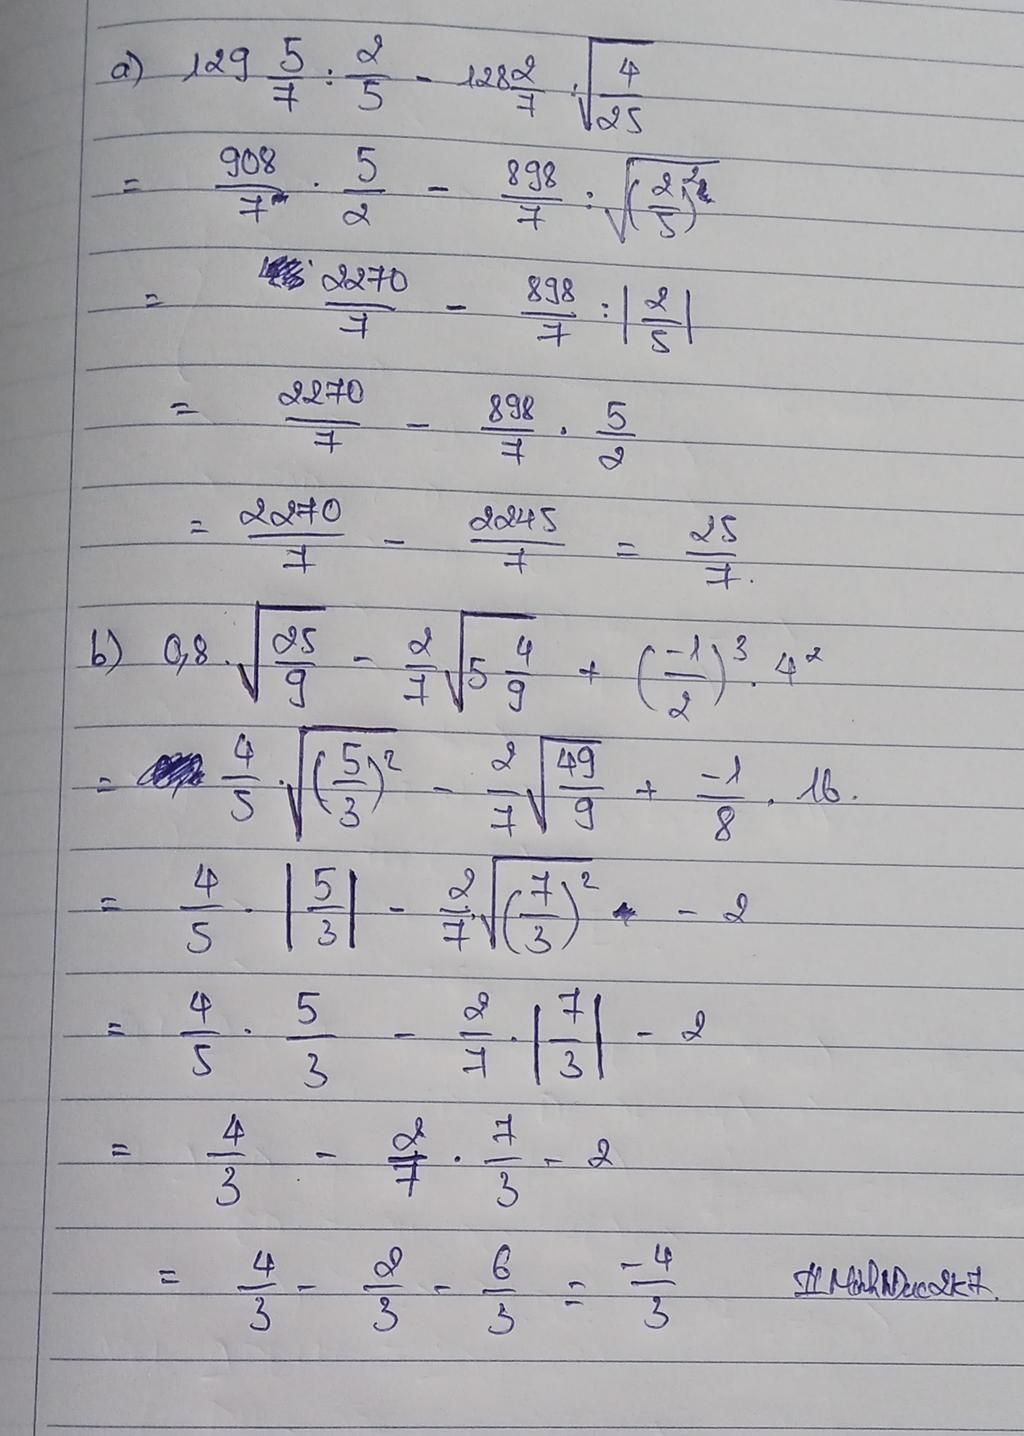 a) 129 5/7 : 2/5 - 128 2/7 : √(4/25)
= 908/7 . 5/2 - 898/7 : √((2/5)²)
= 2270/7 - 898/7 : |2/5|
= 2270/7 - 898/7 . 5/2
= 2270/7 - 2245/7 = 25/7.
b) 0,8 . √(25/9) - 2/7 √(5 4/9) + (-1/2)³ . 4²
= 4/5 . √((5/3)²) - 2/7 √(49/9) + -1/8 . 16.
= 4/5 . |5/3| - 2/7 . √((7/3)²) - 2
= 4/5 . 5/3 - 2/7 . |7/3| - 2
= 4/3 - 2/7 . 7/3 - 2
= 4/3 - 2/3 - 6/3 = -4/3